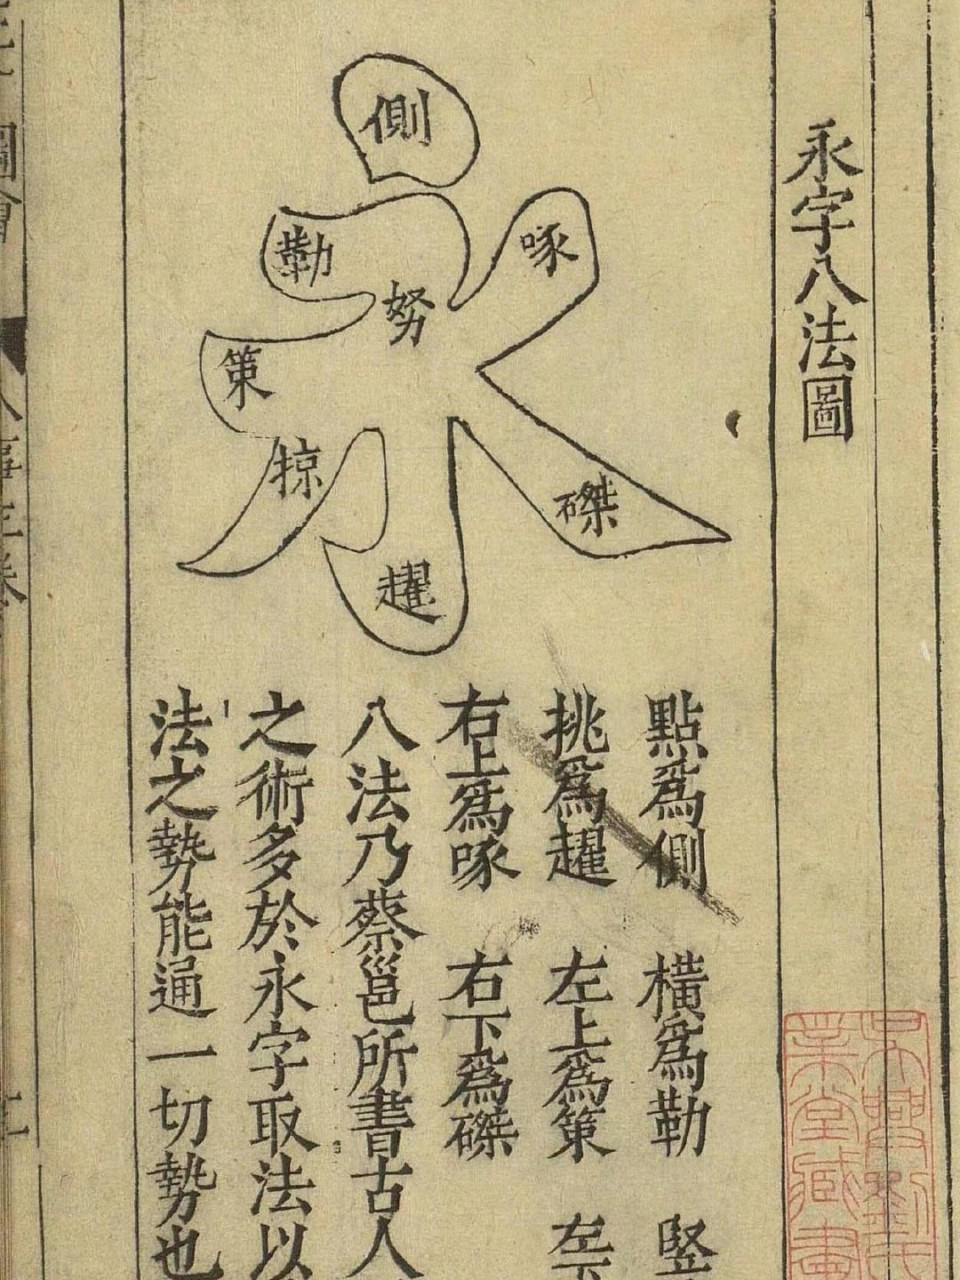 永字八法圖
側
勒
努
啄
策
掠
磔
趯
點爲側 橫爲勒 竪
挑爲趯 左上爲策 左下
右上爲啄 右下爲磔
八法乃蔡邕所書古人
之術多於永字取法以
法之勢能通一切勢也
圖會
人事三卷